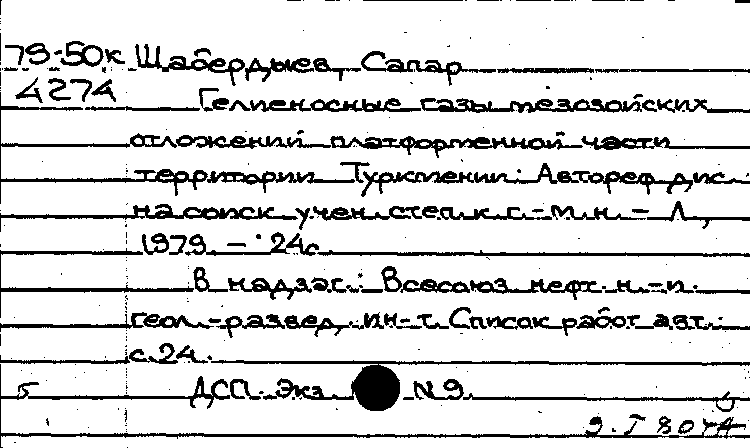 79-50к Шабердыев, Сапар
4274 Гелиеносные газы мезозойских
отложений платформенной части
территории Туркмении: Автореф дис.
на соиск учен. степ. к. г.-м. н. - Л.,
1979. - 24с.
В надзаг.: Всесоюз нефт. н.-и.
геол.-развед. ин-т. Список работ авт.:
с. 24.
5 ДСП. Экз. N 9.